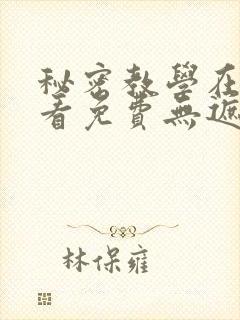 秘密教學在
看免費無遮
林保雍